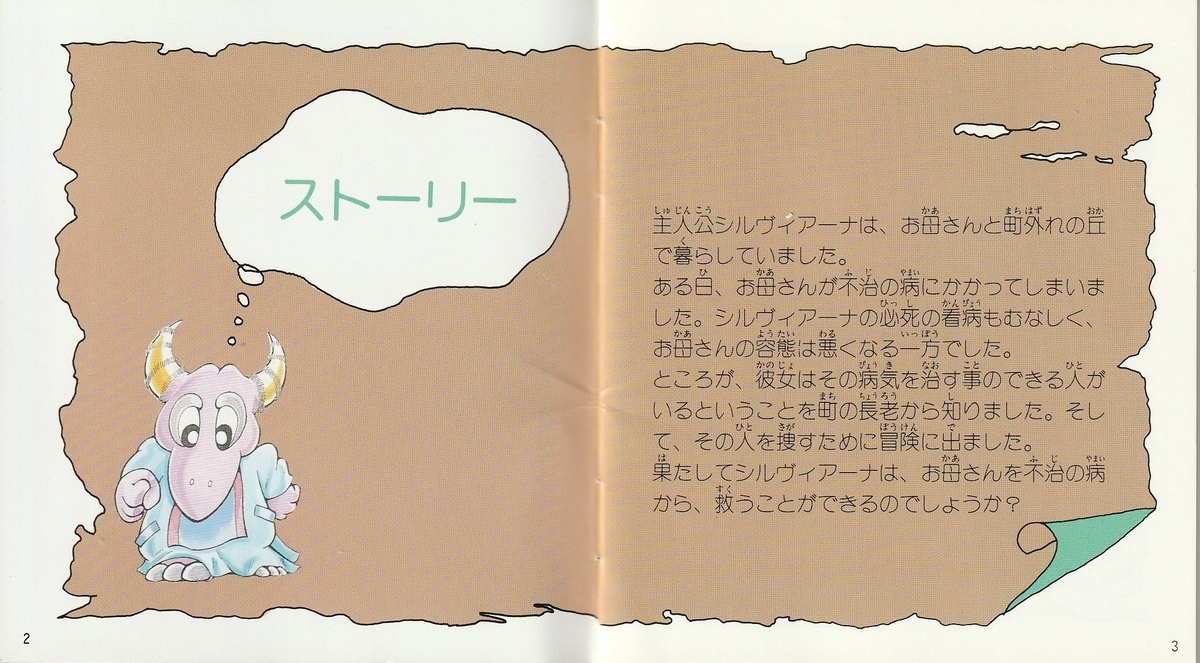 ストーリー
主人公シルヴィアーナは、お母さんと町外れの丘
で暮らしていました。
ある日、お母さんが不治の病にかかってしまいま
した。シルヴィアーナの必死の看病もむなしく、
お母さんの容態は悪くなる一方でした。
ところが、彼女はその病気を治す事のできる人が
いるということを町の長老から知りました。そし
て、その人を捜すために冒険に出ました。
果たしてシルヴィアーナは、お母さんを不治の病
から、救うことができるのでしょうか？
2
3